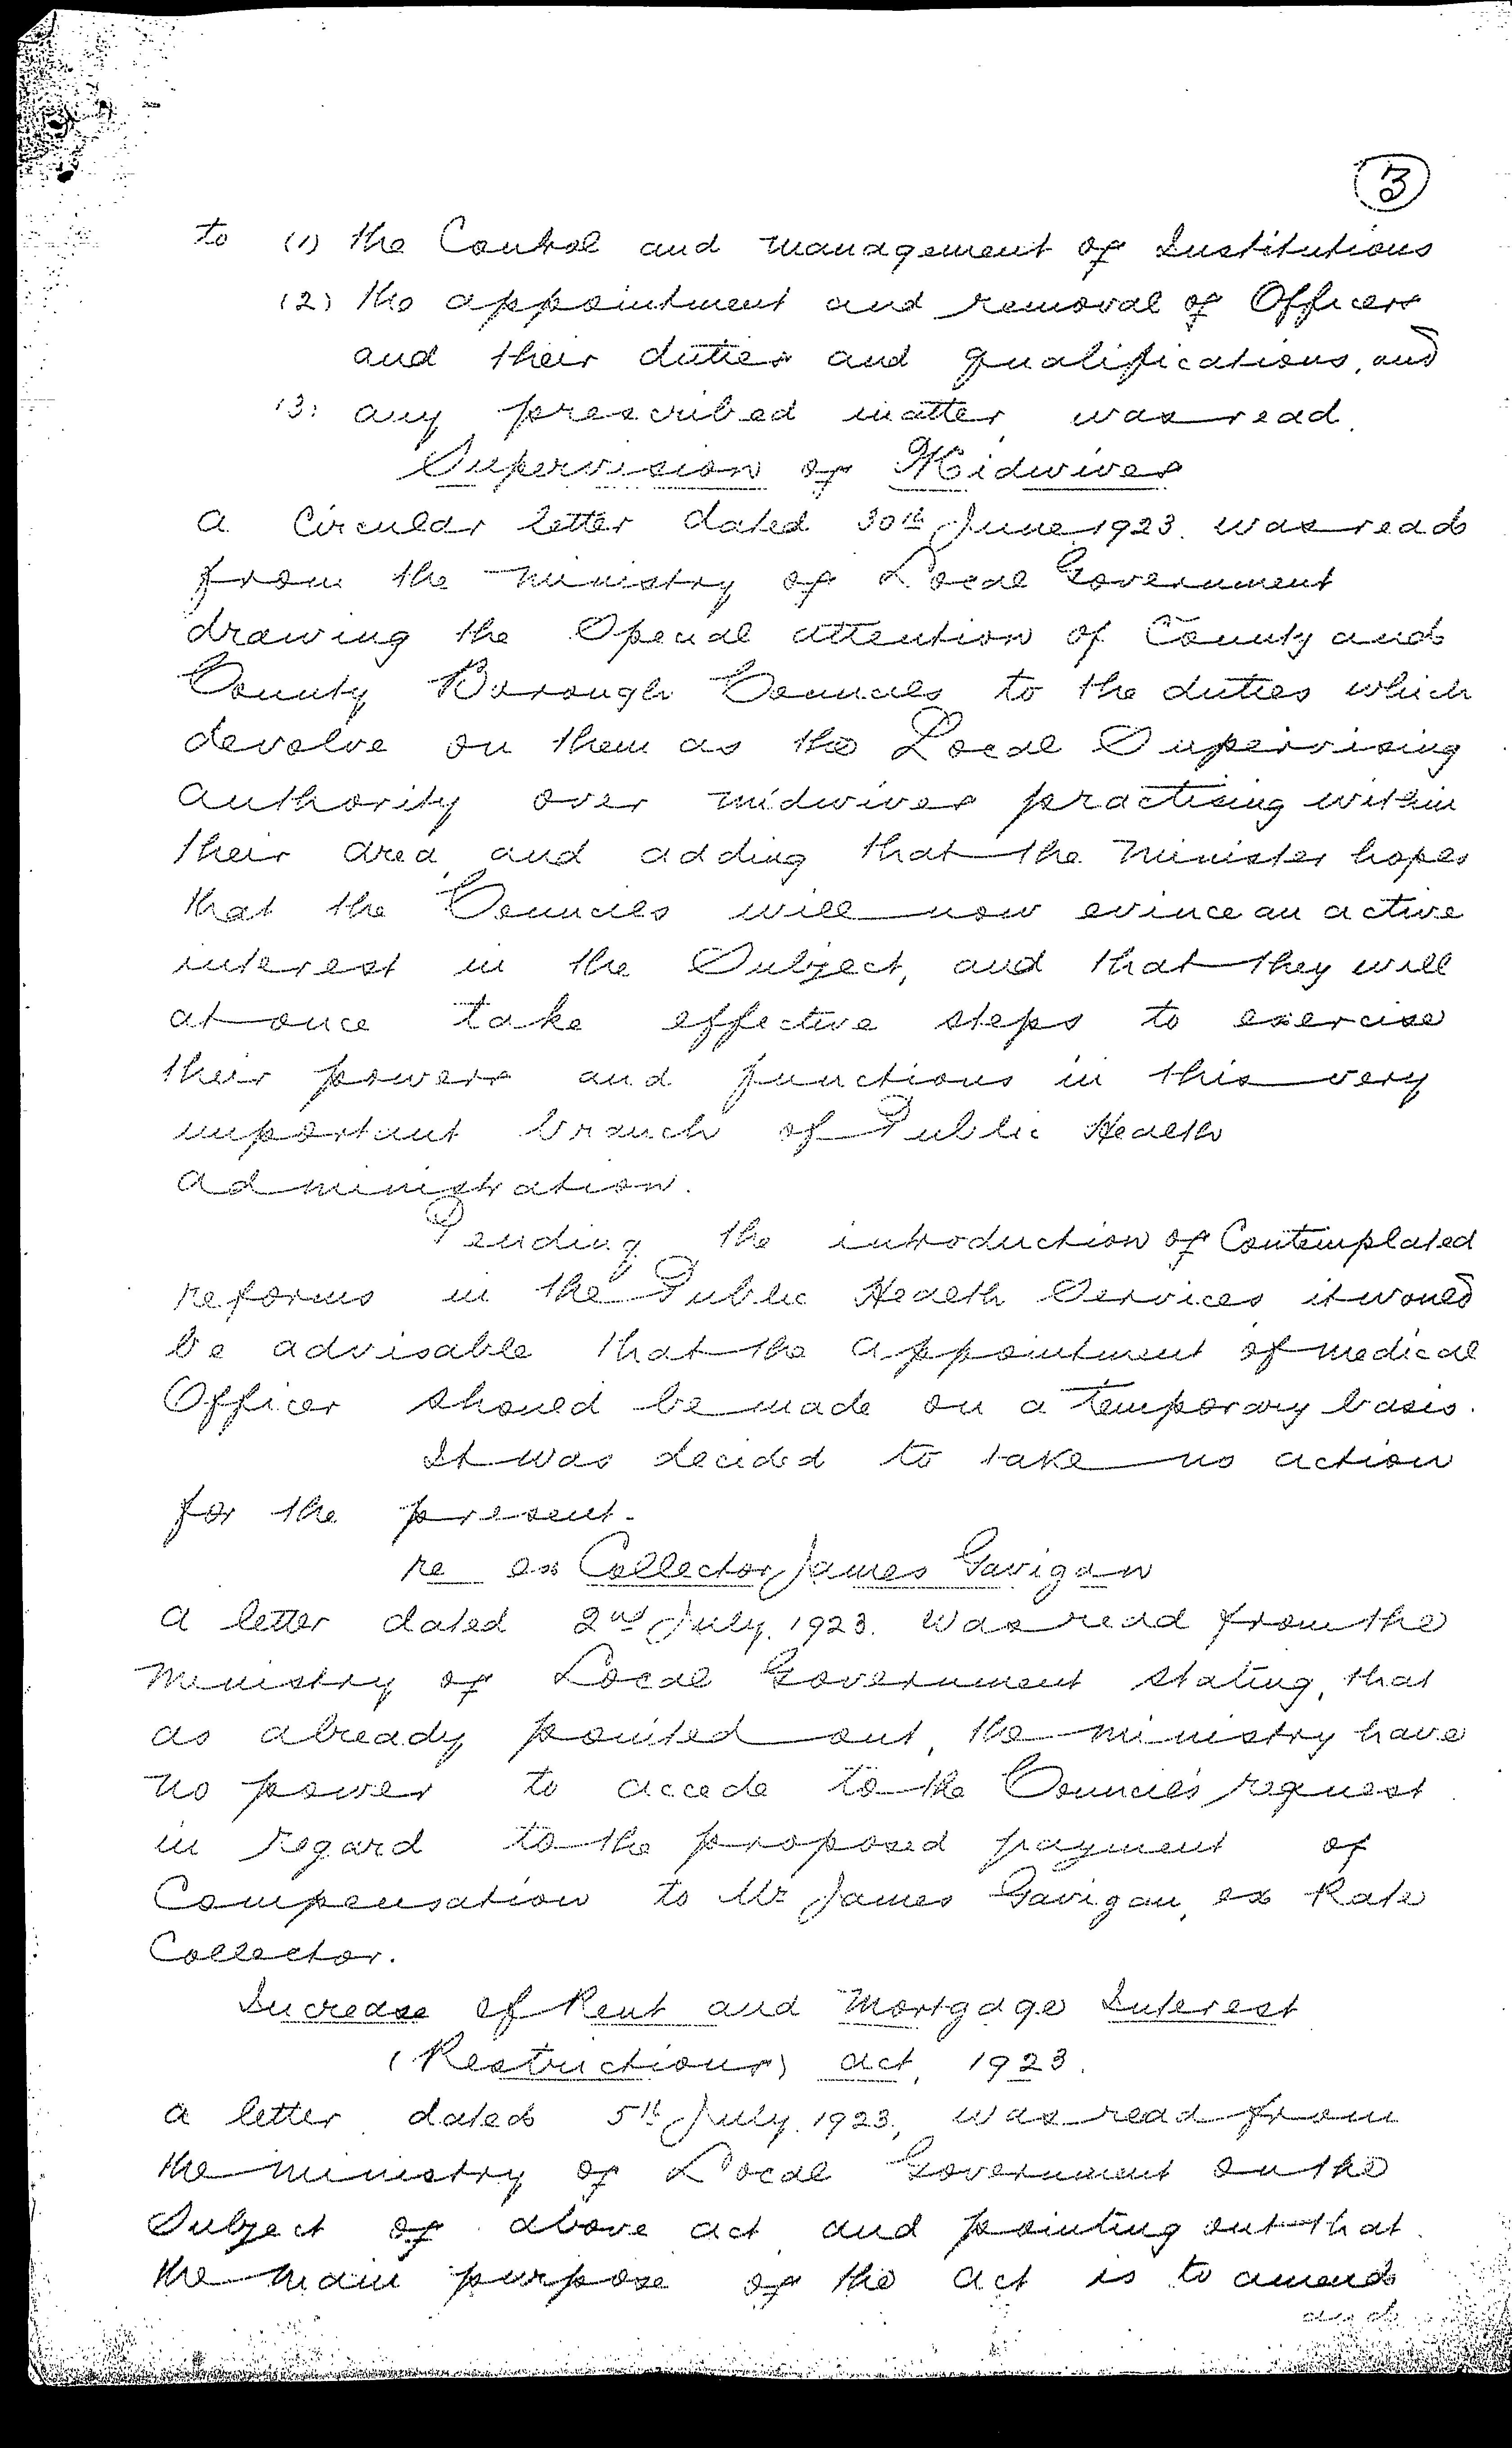 3
to (1) the Control and management of Institutions
(2) the appointment and removal of Officers
and their duties and qualifications, and
(3) any prescribed matter, was read.
Supervision of Midwives
a Circular letter dated 30th June 1923. was read
from the ministry of Local Government
drawing the Special attention of County and
County Borough Councils to the duties which
devolve on them as the Local Supervising
authority over midwives practising within
their area, and adding that the Minister hopes
that the Councils will now evince an active
interest in the Subject, and that they will
at once take effective steps to exercise
their powers and functions in this very
important branch of Public Health
administration.
Pending the introduction of Contemplated
reforms in the Public Health Services it would
be advisable that the appointment of medical
Officer should be made on a temporary basis.
It was decided to take no action
for the present.
re ex Collector James Gavigan
a letter dated 2nd July. 1923. was read from the
ministry of Local Government stating, that
as already pointed out, the ministry have
no power to accede to the Council's request
in regard to the proposed payment of
Compensation to Mr James Gavigan, ex Rate
Collector.
Increase of Rent and Mortgage Interest
(Restrictions) act, 1923.
a letter dated 5th July. 1923, was read from
the ministry of Local Government on the
Subject of above act, and pointing out that
the main purpose of the act is to amend
and